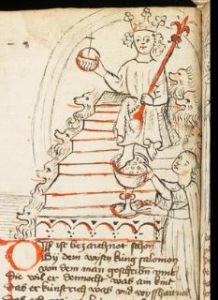 Diß ist bezaichnot schon
By dem wysen küng salomon
von dem man geschriben vint
Die wil er dennocht was ain kint
Das er künstrich was vnd